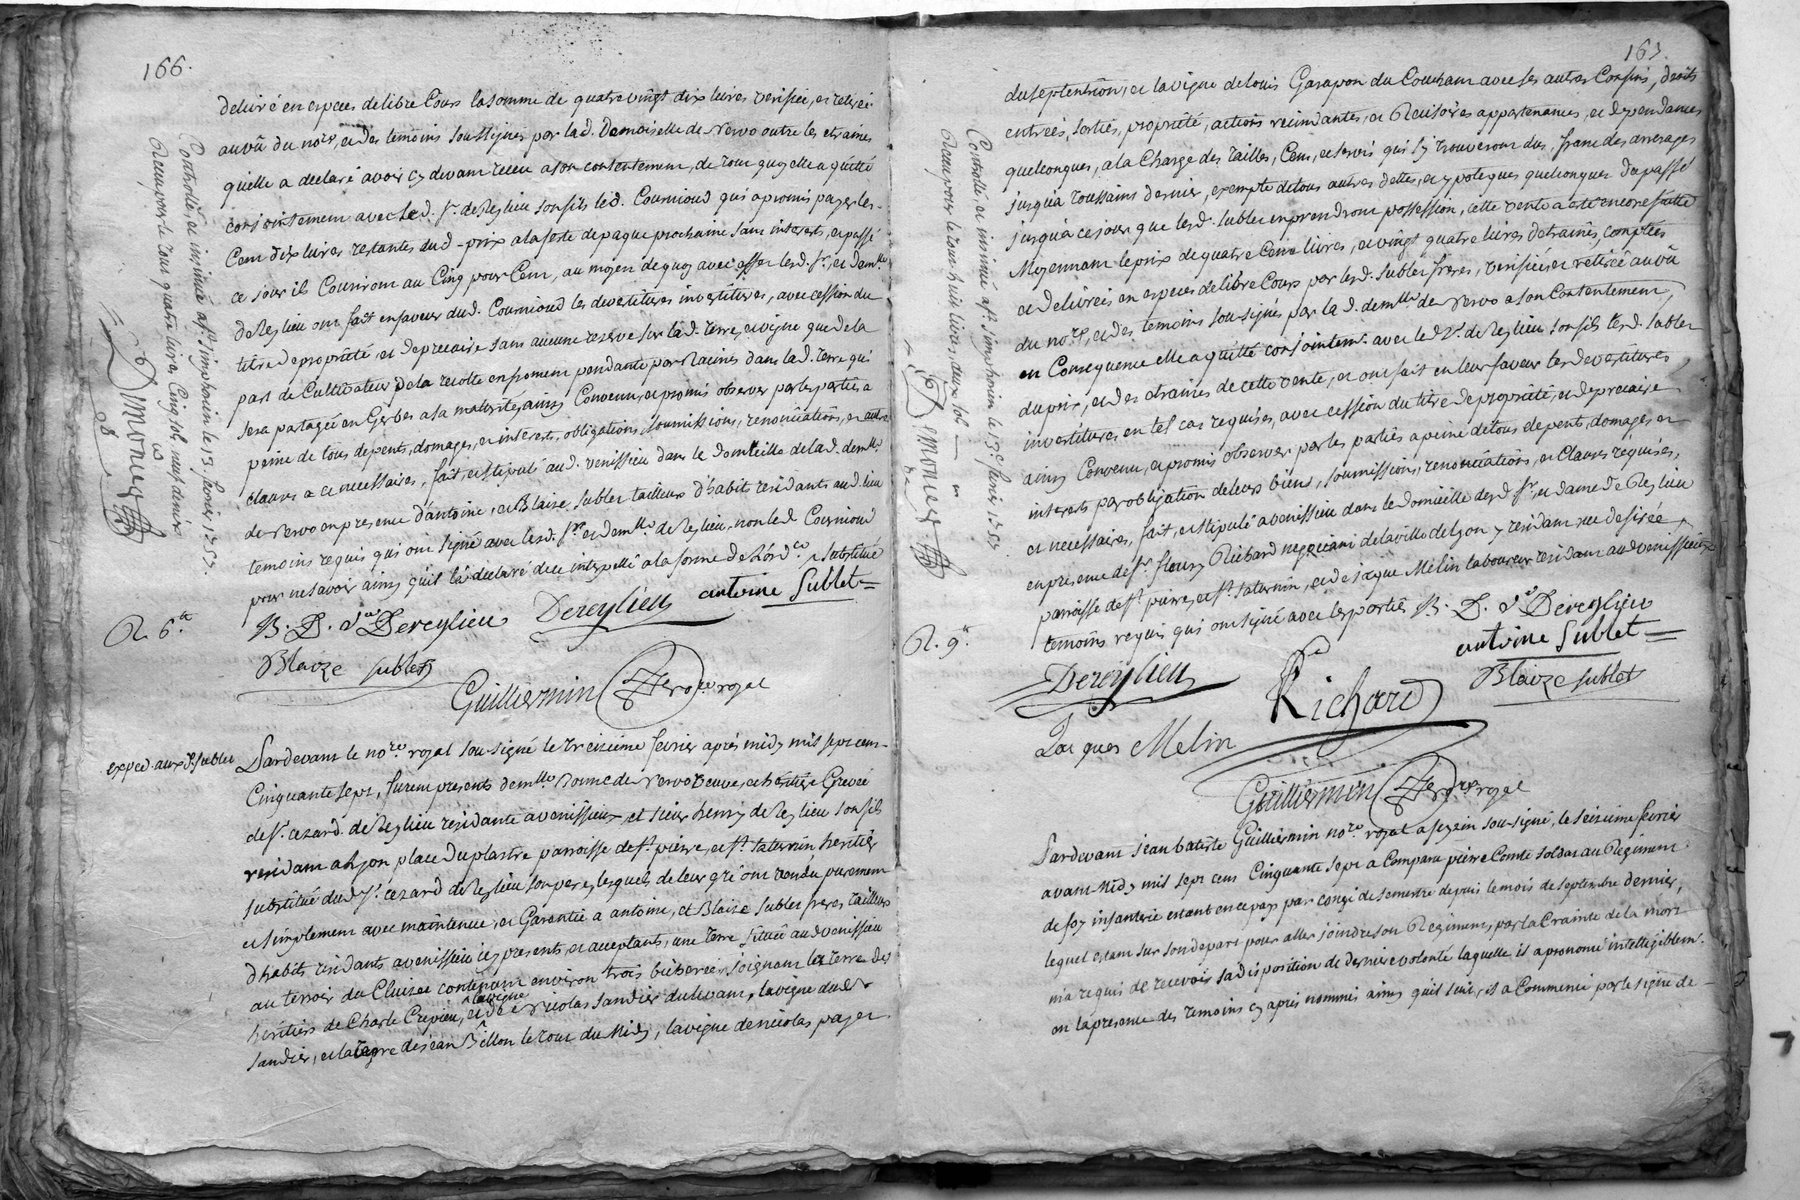 166.
delivré en especes de libre Cours la somme de quatre vingt dix livres verifiée, et retirée
au vû du nore, et des temoins soussignés par lad. Demoiselle de Nervo outre les etraines
qu'elle a declaré avoir cy devant receu a son contentement, de tout quoy elle a quitté
conjointement avec led. sr. de Reylieu son fils led. Cournioud qui a promis payer les
Cent dix livres restantes dud. prix a la feste de paque prochaine sans interests, et passé
ce jour ils Couriront au Cinq pour Cent, au moyen de quoy avec lesd. sr. et demlle
de Reylieu ont fait en faveur dud. Cournioud les devestitures investitures, avec cession du
titre de propriété et de precaire sans aucune reserve sur lad. terre, et vigne que de la
part de Cultivateur de la recolte en froment pendante par Racines dans lad. terre qui
sera partagée en Gerbes a sa maturité, ainsy Convenu, et promis observer par les parties a
peine de tous depents, domages, et interests, obligations, soumissions, renonciations, et autres
clauses a ce necessaires, fait, et stipulé aud. venissieu dans le domicille de lad. demlle
de Nervo en presence d'antoine, et Blaise Sublet tailleurs d'habits residants aud. lieu
temoins requis qui ont signé avec lesd. sr. et demlle de Reylieu, non led. Cournioud
pour ne savoir ainsy qu'il l'a declaré de ce interpellé a la forme de l'ordce substitué
B. D. vve Dereylieu Dereylieu antoine Sublet
R. 6 tt
Blaize sublet
Guilliermin nore royal
Controllé, et insinué a st. simphorien le 13. fevrier 1757.
Receu pour le tout quatre livres Cinq sols neuf deniers
Simonet
exped. aux d. sublet
Pardevant le nore royal sou-signé le treizieme fevrier aprés midy mil sept cent
Cinquante sept, furent presents demlle Bonne de Nervo veuve, et heritiere Grevée
de sr. cezard de Reylieu residante a venissieux et sieur henry de Reylieu son fils
residant a Lyon place du plastre parroisse de st. pierre, et st. saturnin, heritier
substitué dud. sr. cezard de Reylieu son pere, lesquels de leur gré ont vendu purement
et simplement avec maintenue, et Garentie a antoine, et Blaise Sublet freres tailleurs
d'habits residants a venissieu icy presents, et acceptants, une terre situeé aud. venissieu
au terroir du Cluzet contenant environ trois bicherées joignant la terre des
heritiers de Charle Crepieu, et la vigne de Nicolas Sandier du levant, la vigne dud.
Sandier, et la terre de jean Billon le tout du Midy, la vigne de nicolas payet
163.
du septentrion, et la vigne de louis Garapon du Couchant avec ses autres Confins, droits
entreés, sorties, proprieté, actions recindantes, et Recisoires appartenances, et dependances
quelconques, a la Charge des tailles, Cens, et servis qui s'y trouveront dus, franc des arrerages
jusqu'a toussaints dernier, exempte de tous autres dettes, et ypoteques quelconques du passé
jusqu'a ce jour que lesd. sublet en prendront possession, cette vente a eté encore faitte
Moyennant le prix de quatre Cent livres, et vingt quatre livres d'etraines, comptés
et delivreés en especes de libre Cours par lesd. Sublet freres, verifiée, et retireé au vû
du nore, et des temoins sou-signés par lad. demlle de Nervo a son Contentement,
en Consequence elle a quitté conjointemt. avec led. sr. de Reylieu son fils lesd. Sublet
du prix, et des etraines de cette vente, et ont fait en leur faveur les devestitures
investitures en tel cas requises, avec cession du titre de propriété, et de precaire
ainsy Convenu, et promis observer par les parties a peine de tous depents, domages, et
interests par obligation de leurs biens, soumissions, renonciations, et Clauses requises,
et necessaires, fait, et stipulé a venissieu dans le domicille desd. sr. et dame de Reylieu
en presence de sr. fleury Richard negociant de la ville de Lyon y residant rue desirée,
parroisse de st. pierre, et st. saturnin, et de jaque Melin laboureur residant aud. venissieux
temoins requis qui ont signé avec les parties B. D. vve Dereylieu
R. 9 tt
antoine Sublet
Dereylieu Richard Blaize sublet
Jacques Melin
Guilliermin nore royal
Controllé, et insinué a st. simphorien le 13e. fevrier 1757
Receu pour le tout huit livres deux sols
Simonet
Pardevant jean batiste Guilliermin nore royal a feyzin sou-signé, le seizieme fevrier
avant-Midy mil sept cent Cinquante sept a Comparu pierre Comte soldat au Regiment
de foy infanterie estant en ce pays par congé de semestre depuis le mois de septembre dernier,
lequel estant sur son depart pour aller joindre son Regiment, par la Crainte de la mort
m'a requis de recevoir sa disposition de derniere volonté laquelle il a prononcé intelligiblemt.
en la presence des temoins cy aprés nommés ainsy qu'il suit, il a Commencé par le signe de